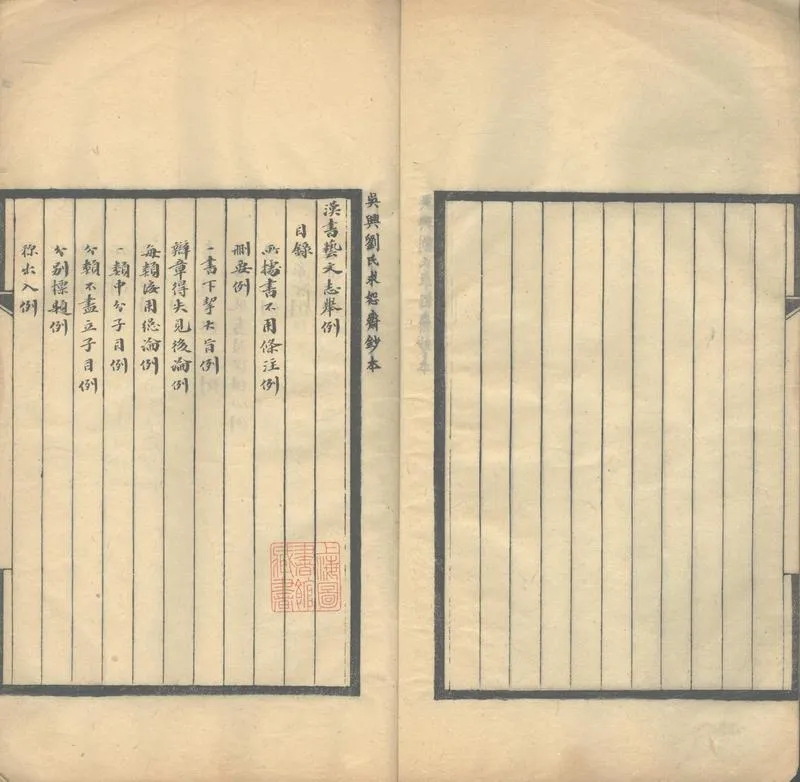 吳興劉氏求恕齋鈔本
漢書藝文志舉例
目錄
所據書不用條注例
刪要例
一書下挈大旨例
辯章得失見後論例
每類後用總論例
一類中分子目例
分類不盡立子目例
分別標題例
稱出入例
上海圖書館藏書